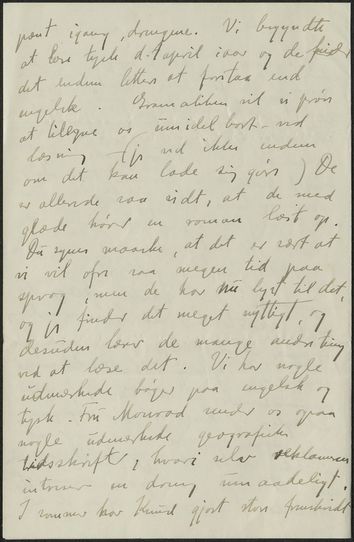 pænt igang, drengene. Vi begyndte
at læse tysk d. 1 april iaar og de finder
det endnu lettere at forstaa end
engelsk. Gramatikken vil vi prøve
at tilegne os umidelbart ved
læsning (jeg ved ikke endnu
om det kan lade sig gøre) De
er allerede saa vidt, at de med
glæde hører en roman læst op.
Du synes maaske, at det er rart at
vi vil ofre saa megen tid paa
sprog, men de har nu lyst til det,
og jeg finder det meget nyttigt, og
desuden lærer de mange andre ting
ved at læse det. Vi har nogle
udmærkede bøger paa engelsk og
tysk. Fru Monrad sender os ogsaa
nogle udmærkede geografiske
tidsskrifter, hvori selv reklamerne
intreser en dreng umaadeligt.
I sommer har Knud gjort store fremskridt